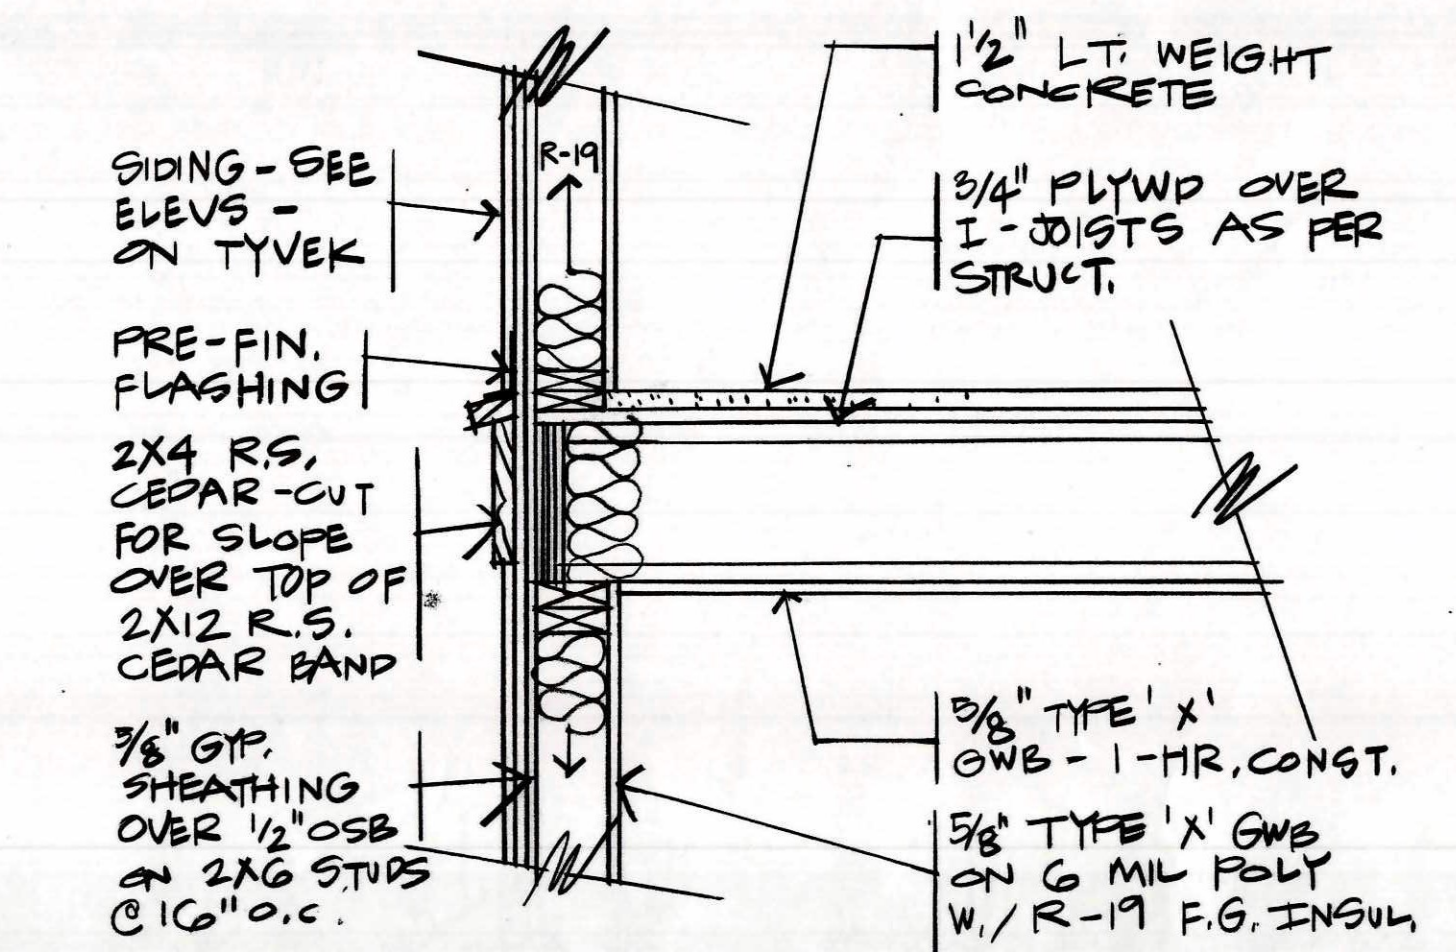 SIDING - SEE
ELEVS -
ON TYVEK
PRE-FIN.
FLASHING
2X4 R.S.
CEDAR - CUT
FOR SLOPE
OVER TOP OF
2X12 R.S.
CEDAR BAND
5/8" GYP.
SHEATHING
OVER 1/2" OSB
ON 2X6 STUDS
@ 16" O.C.
R-19
1 1/2" LT. WEIGHT
CONCRETE
3/4" PLYWD OVER
I-JOISTS AS PER
STRUCT.
5/8" TYPE 'X'
GWB - 1-HR. CONST.
5/8" TYPE 'X' GWB
ON 6 MIL POLY
W./ R-19 F.G. INSUL.